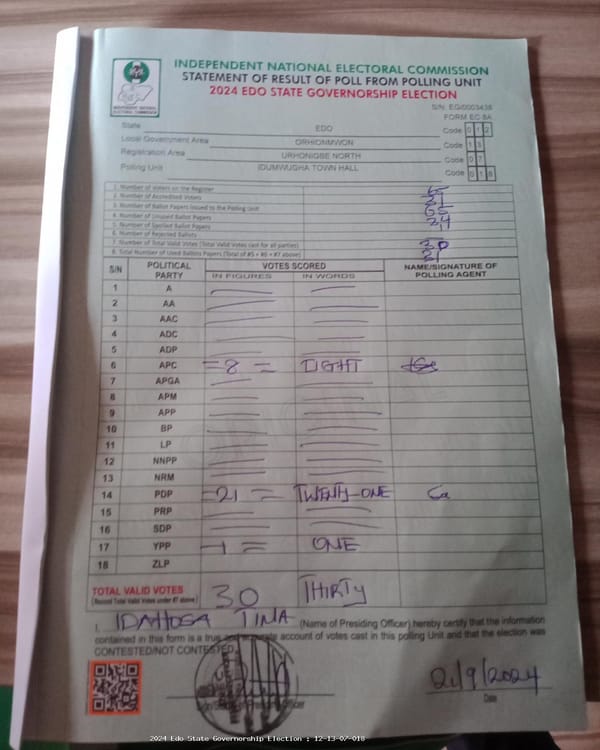 INDEPENDENT NATIONAL ELECTORAL COMMISSION
STATEMENT OF RESULT OF POLL FROM POLLING UNIT
2024 EDO STATE GOVERNORSHIP ELECTION
INDEPENDENT NATIONAL ELECTORAL COMMISSION
S/N: EG/0003438
FORM EC 8A
State EDO Code 0 1 2
Local Government Area ORHIONMWON Code 1 3
Registration Area URHONIGBE NORTH Code 0 7
Polling Unit IDUMWUGHA TOWN HALL Code 0 1 8
1. Number of Voters on the Register
2. Number of Accredited Voters
3. Number of Ballot Papers Issued to the Polling Unit
4. Number of Unused Ballot Papers
5. Number of Spoiled Ballot Papers
6. Number of Rejected Ballots
7. Number of Total Valid Votes (Total Valid Votes cast for all parties)
8. Total Number of Used Ballots Papers (Total of #5 + #6 + #7 above)
S/N POLITICAL PARTY VOTES SCORED NAME/SIGNATURE OF POLLING AGENT
IN FIGURES IN WORDS
1 A
2 AA
3 AAC
4 ADC
5 ADP
6 APC =8= EIGHT
7 APGA
8 APM
9 APP
10 BP
11 LP
12 NNPP
13 NRM
14 PDP =21= TWENTY-ONE
15 PRP
16 SDP
17 YPP -1= ONE
18 ZLP
TOTAL VALID VOTES 30 THIRTY
(Record Total Valid Votes under #7 above)
I, IDAHOSA TINA (Name of Presiding Officer) hereby certify that the information
contained in this form is a true and accurate account of votes cast in this polling Unit and that the election was
CONTESTED/NOT CONTESTED.
21/9/2024
Date
2024 Edo State Governorship Election : 12-13-07-018